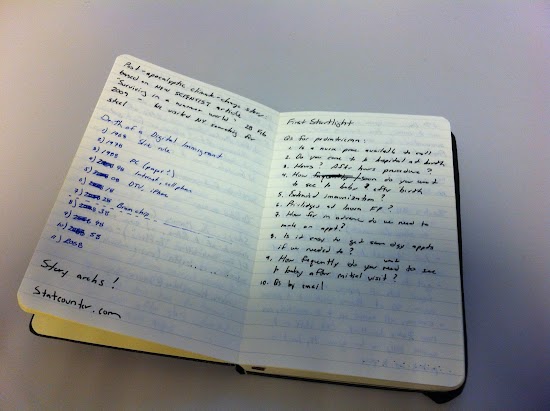 Post-apocalyptic climate-change story
based on NEW SCIENTIST article
"Surviving in a warmer world" - 28 Feb
2009 - be visited NY scavenging for
steel
Death of a Digital Immigrant
1) 1968 Slide rule
2) 1978
3) 1988 PC (paper!)
4) 98 Internet, cellphone
5) 08 DTV, iPhone
6) 18
7) 28 Brainchip
8) 38
9) 48
10) 58
11) 2068
Story arcs!
Statcounter.com
First Startlight
Qs for pediatrician:
1. Is a nurse press available to call
2. Do you come to hospital at birth
3. Hours? After hours procedure?
4. How soon do you want
to see baby after birth
5. Preferred immunization?
6. Privileges at
7. How far in advance do we need to
make an appt?
8. Is it easy to get same day appts
if we needed to?
9. How frequently do you want need to see
baby after initial visit?
10. Qs by email